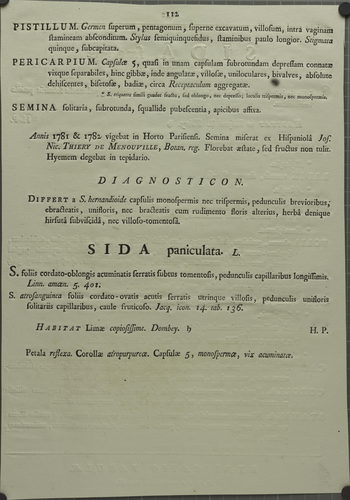 112
PISTILLUM. Germen superum, pentagonum, superne excavatum, villosum, intra vaginam
stamineam absconditum. Stylus semiquinquefidus, staminibus paulo longior. Stigmata
quinque, subcapitata.
PERICARPIUM. Capsulæ 5, quasi in unam capsulam subrotundam depressam connatæ
vixque separabiles, hinc gibbæ, inde angulatæ, villosæ, uniloculares, bivalves, absolute
dehiscentes, bisetosæ, badiæ, circa Receptaculum aggregatæ.
S. triquetra simili gaudet fructu, sed oblongo, nec depresso; loculis trispermis, nec monospermis.
SEMINA solitaria, subrotunda, squallide pubescentia, apicibus affixa.
Annis 1781 & 1782 vigebat in Horto Parisiensi. Semina miserat ex Hispaniolâ Jos.
Nic. THIERY DE MENOUVILLE, Botan. reg. Florebat æstate, sed fructus non tulit.
Hyemem degebat in tepidario.
DIAGNOSTICON.
DIFFERT a S. hernandioide capsulis monospermis nec trispermis, pedunculis brevioribus,
ebracteatis, unifloris, nec bracteatis cum rudimento floris alterius, herbâ denique
hirsutâ subviscidâ, nec villoso-tomentosâ.
SIDA paniculata. L.
S. foliis cordato-oblongis acuminatis serratis subtus tomentosis, pedunculis capillaribus longissimis.
Linn. amœn. 5. 401.
S. atrosanguinea foliis cordato-ovatis acutis serratis utrinque villosis, pedunculis unifloris
solitariis capillaribus, caule fruticoso. Jacq. icon. 14. tab. 136.
HABITAT Limæ copiosissime. Dombey. ♄ H. P.
Petala reflexa. Corollæ atropurpureæ. Capsulæ 5, monospermæ, vix acuminatæ.